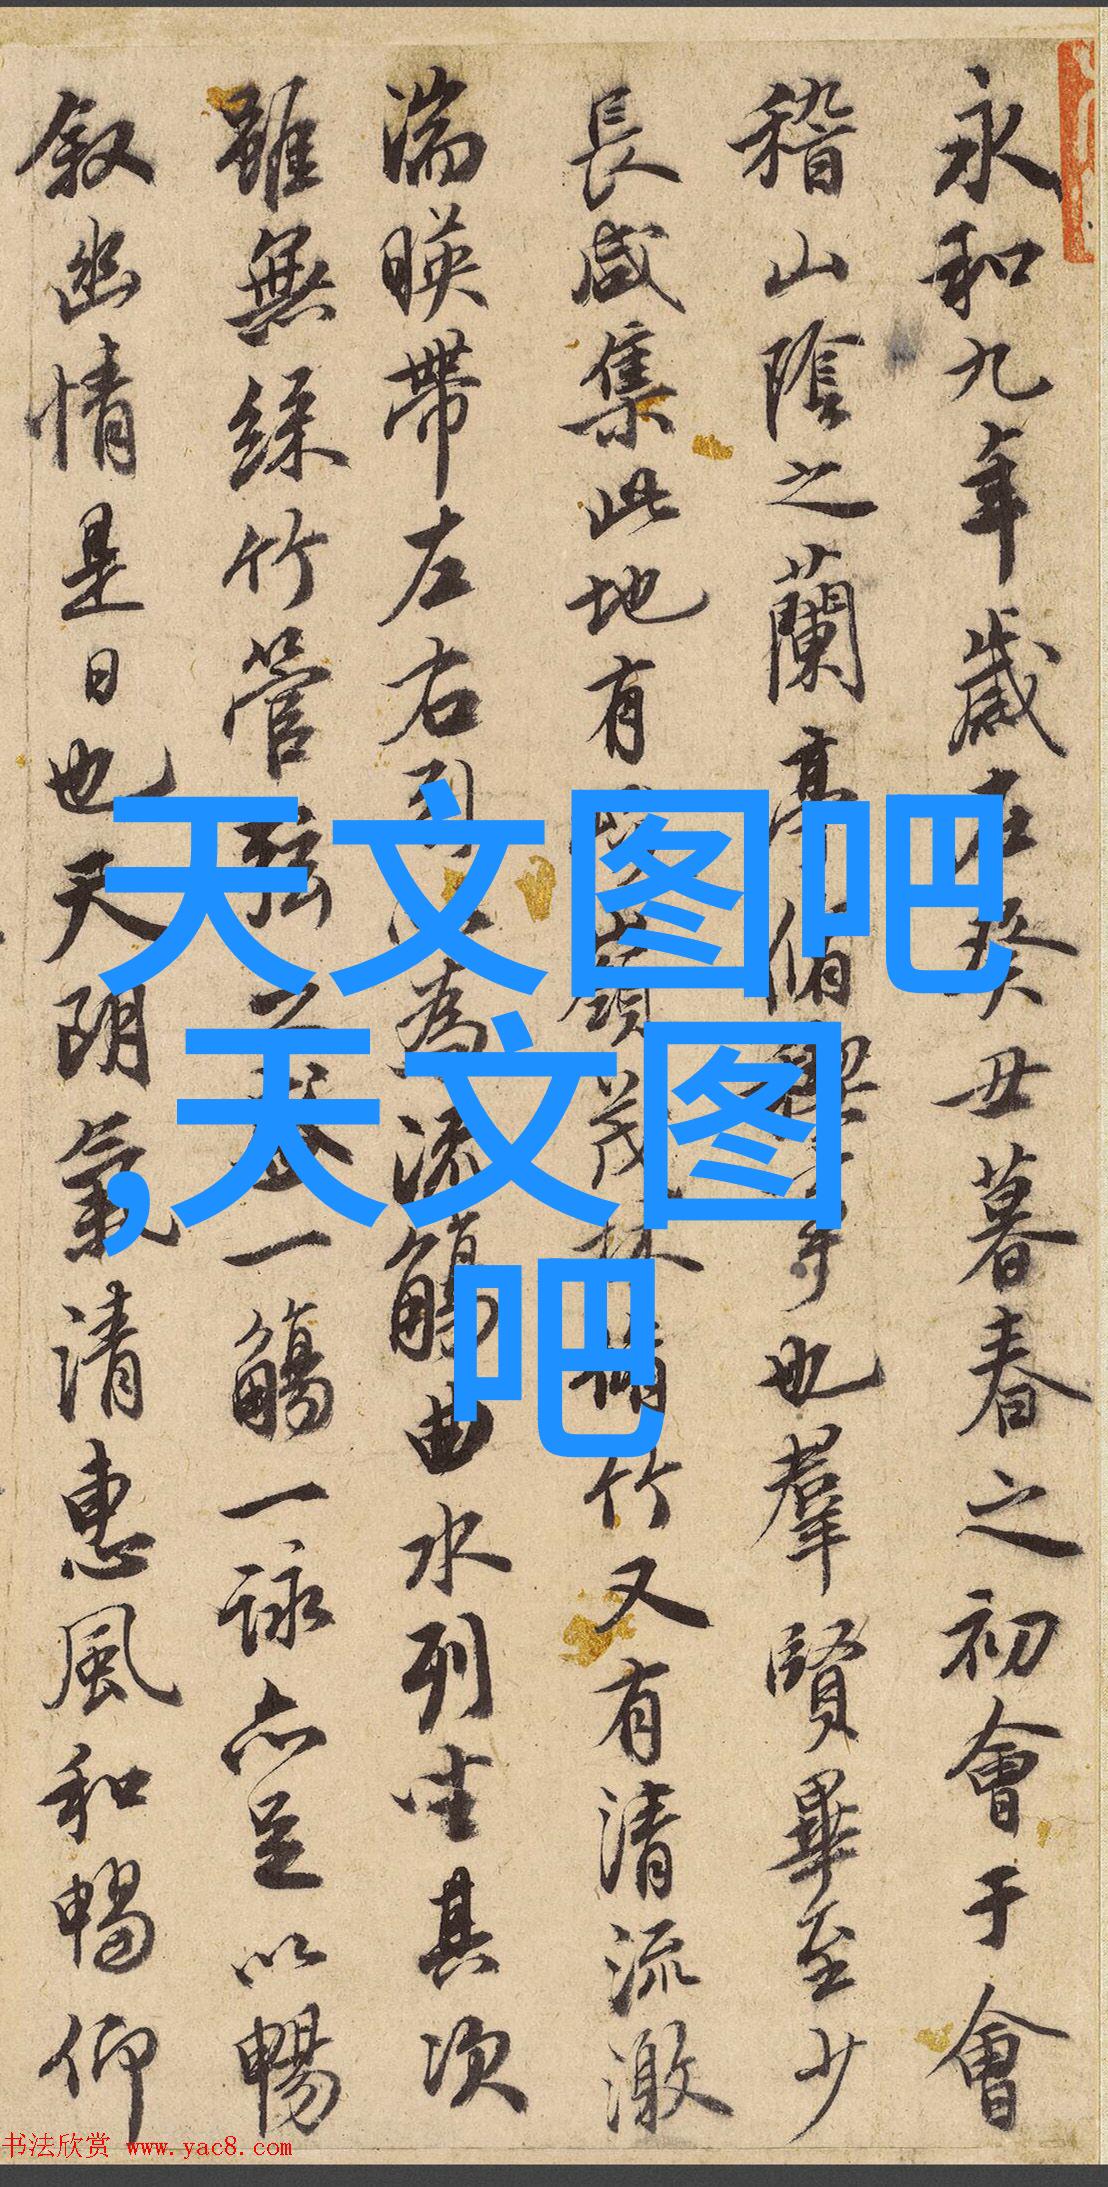 永和九年歲在癸丑暮春之初會于會
稽山陰之蘭亭脩禊事也羣賢畢至少
長咸集此地有嶺茂林脩竹又有清流激
湍暎帶左右引以為流觴曲水列坐其次
雖無絲竹管弦之盛一觴一詠亦足以暢
叙幽情是日也天朗氣清惠風和暢仰
天文图吧
,天文图
吧
书法欣赏 www.yac8.com